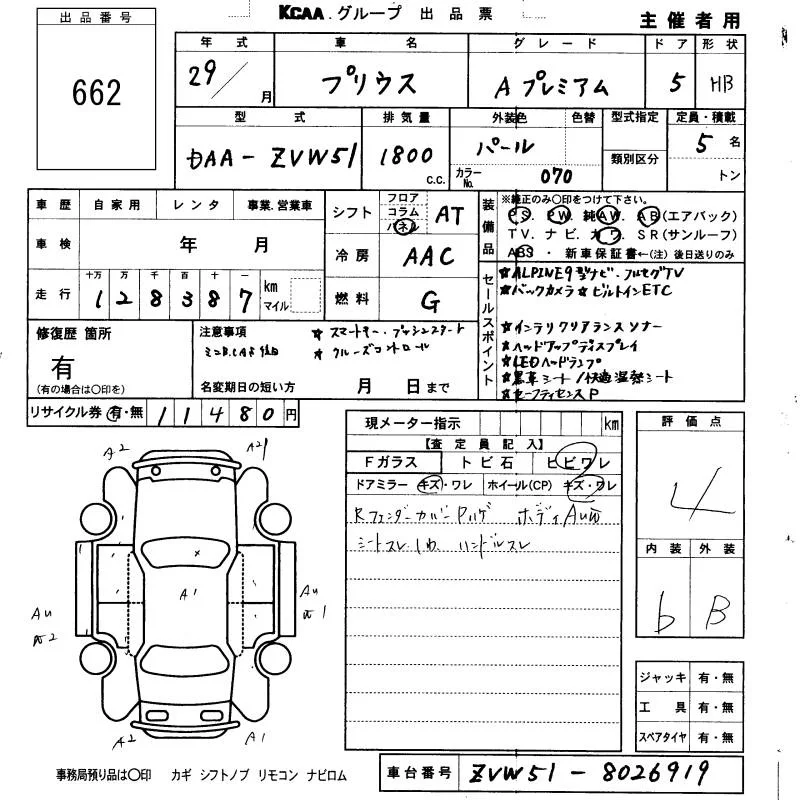 KCAA.グループ 出品票
主催者用
出品番号
662
年式 車名 グレード ドア 形状
29/ 月 プリウス Aプレミアム 5 HB
型式 排気量 外装色 色替 型式指定 定員・積載
DAA-ZVW51 1800 c.c. パール 5名
カラーNo. 070 類別区分 トン
車歴 自家用 レンタ 事業.営業車
車検 年 月
走行 十万 万 千 百 十 一
128387 km マイル
シフト フロア コラム パネル AT
冷房 AAC
燃料 G
装備品
※純正のみ○印をつけて下さい。
PS. PW. 純AW. AB(エアバック)
TV. ナビ. カワ. SR(サンルーフ)
ABS・新車保証書←(注)後日送りのみ
セールスポイント
☆ALPINE9型ナビ・フルセグTV
☆バックカメラ☆ビルトインETC
☆インテリクリアランスソナー
☆ヘッドアップディスプレイ
☆LEDヘッドランプ
☆黒革シート/快適温熱シート
☆セーフティセンスP
修復歴 箇所
有
(有の場合は○印を)
注意事項
☆スマートキー・プッシュスタート
☆クルーズコントロール
名変期日の短い方 月 日まで
リサイクル券 有・無 11480円
現メーター指示 km
【査定員記入】
Fガラス トビ石 ヒビワレ
ドアミラー キズ・ワレ ホイール(CP) キズ・ワレ
Rフェンダーカバーハゲ ボディAU有
シートスレ シワ ハンドルスレ
評価点
4
内装 外装
b B
ジャッキ 有・無
工具 有・無
スペアタイヤ 有・無
A2 A21
A1
AU AU
A2 A1
事務局預り品は○印 カギ シフトノブ リモコン ナビロム
車台番号 ZVW51-8026919